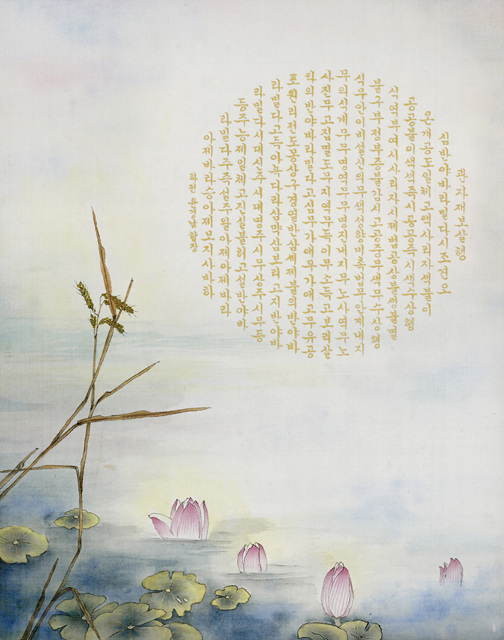 관자재보살행
심반야바라밀다시조견오
온개공도일체고액사리자색불이
공공불이색색즉시공공즉시색수상행
식역부여시사리자시제법공상불생불멸
불구부정부증불감시고공중무색무수상행
식무안이비설신의무색성향미촉법무안계내지
무의식계무무명역무무명진내지무노사역무노
사진무고집멸도무지역무득이무소득고보리살
타의반야바라밀다고심무가애무가애고무유공
포원리전도몽상구경열반삼세제불의반야바
라밀다고득아뇩다라삼먁삼보리고지반야바
라밀다시대신주시대명주시무상주시무등
등주능제일체고진실불허고설반야바
라밀다주즉설주왈아제아제바라
아제바라승아제모지사바하